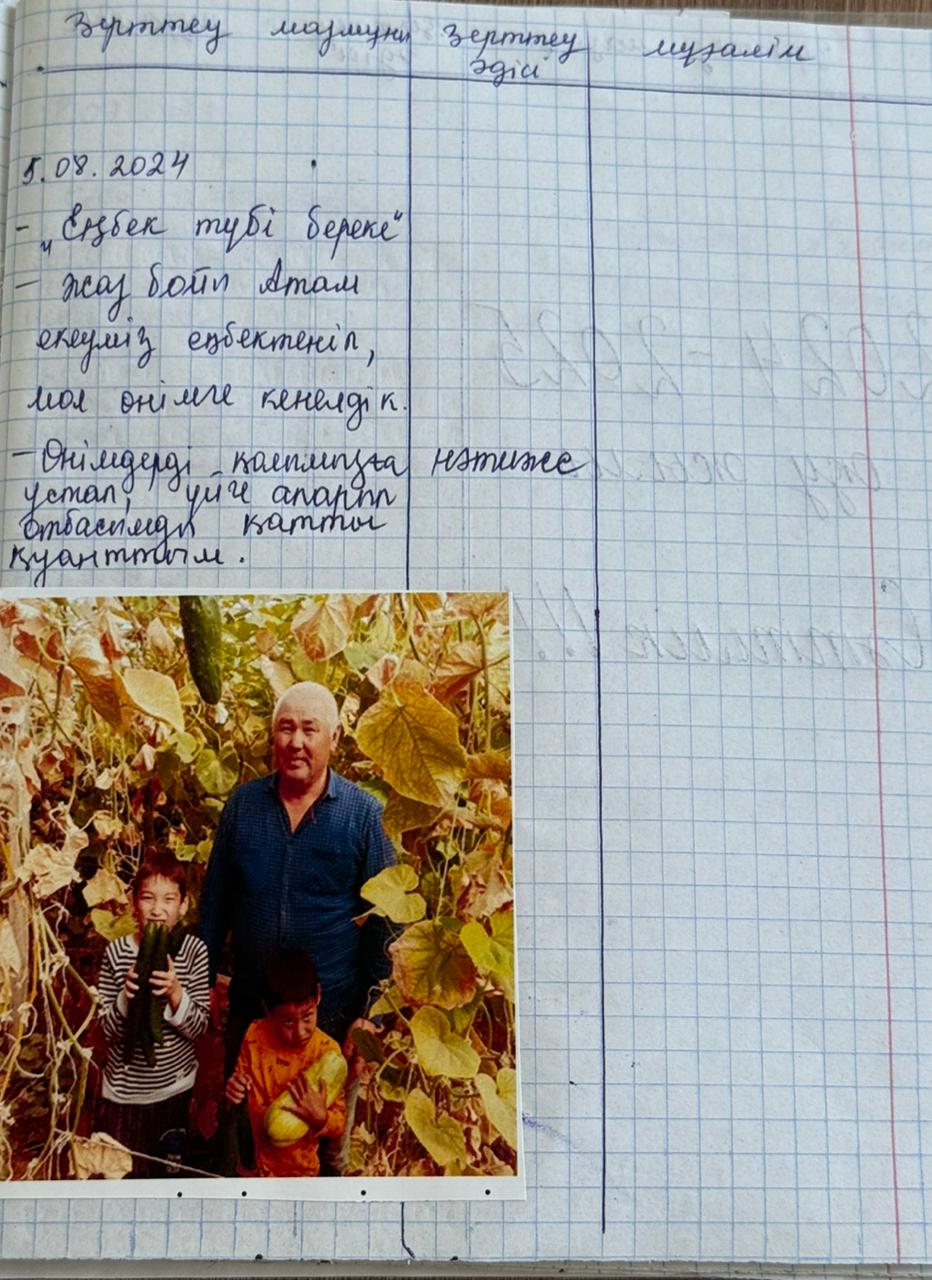 Зерттеу мазмұны Зерттеу әдісі мұғалім
5.08.2024
- „Еңбек түбі береке“
- Жаз бойы Атам
екеуміз еңбектеніп,
мол өнімге кенелдік.
- Өнімдерді қолымызға нәтиже
ұстап, үйге апарып
отбасымды қатты
қуанттым.
2024-2025
оқу жылы